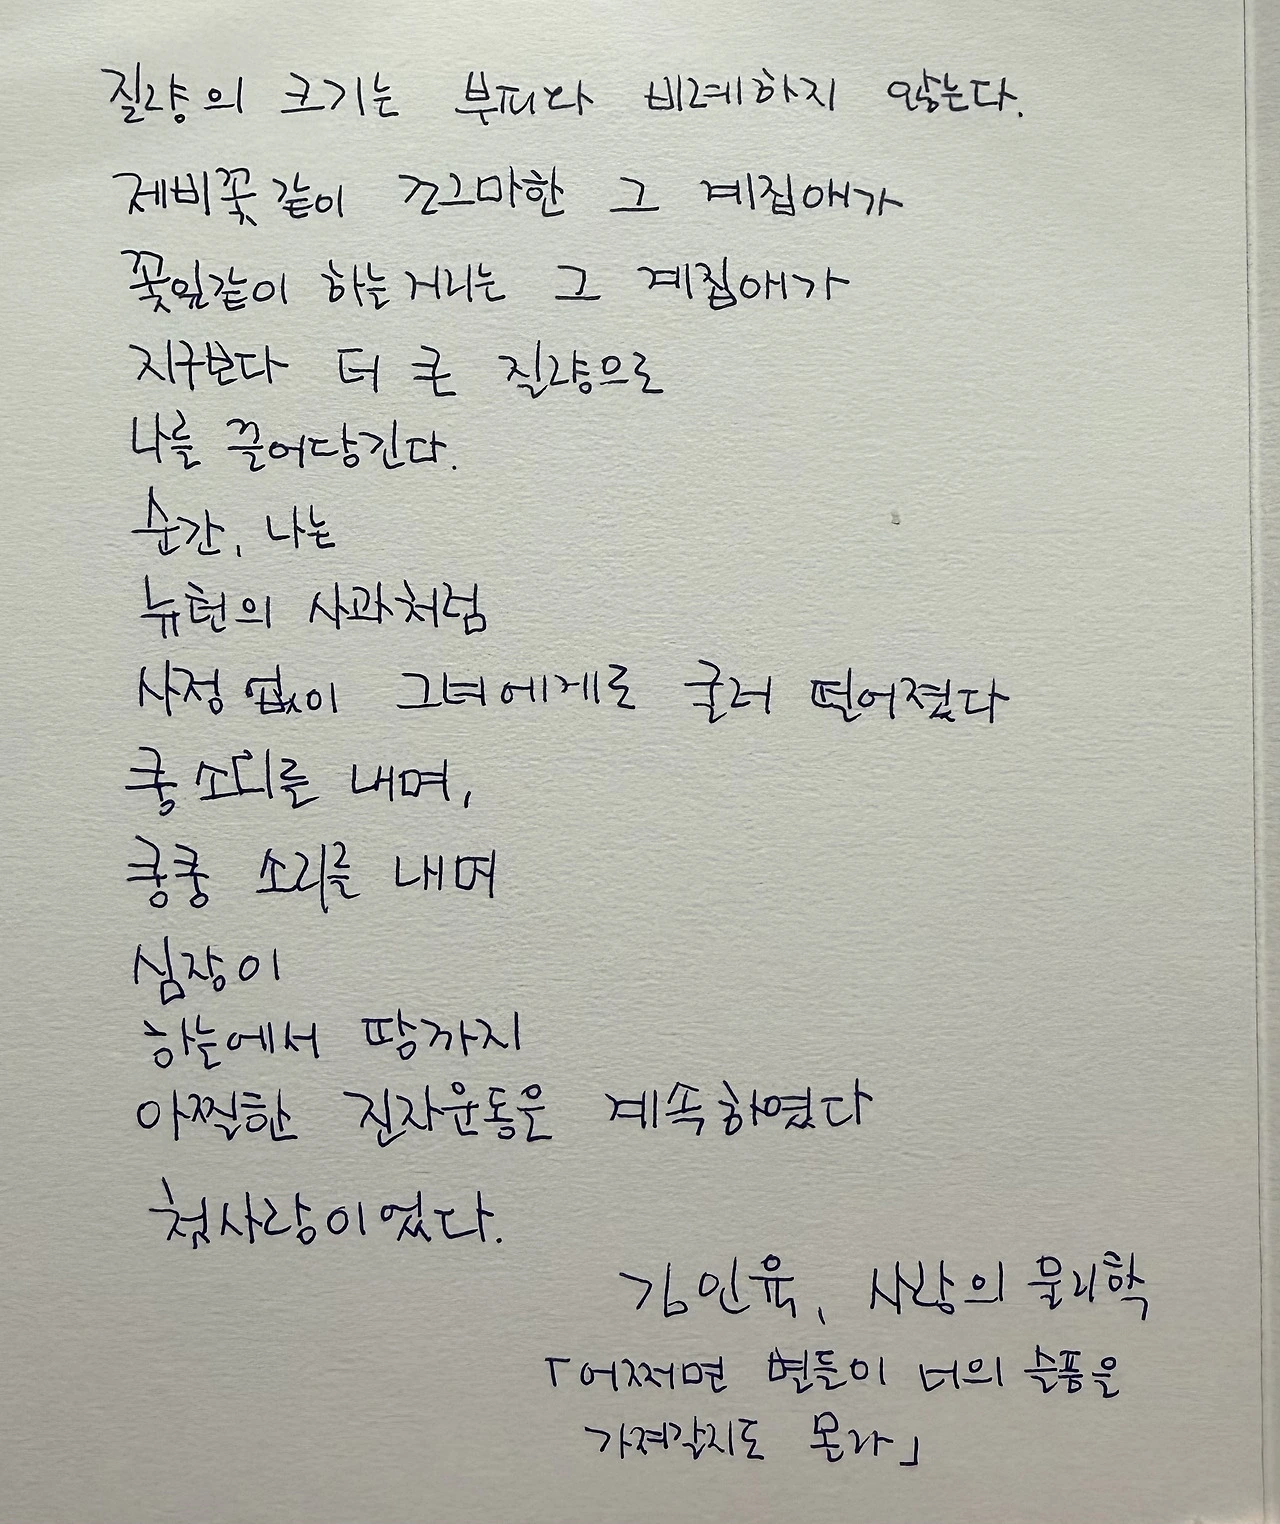 질량의 크기는 부피와 비례하지 않는다.
제비꽃같이 조그마한 그 계집애가
꽃잎같이 하늘거리는 그 계집애가
지구보다 더 큰 질량으로
나를 끌어당긴다.
순간, 나는
뉴턴의 사과처럼
사정없이 그녀에게로 굴러 떨어졌다
쿵 소리를 내며,
쿵쿵 소리를 내며
심장이
하늘에서 땅까지
아찔한 진자운동을 계속하였다
첫사랑이었다.
김인육, 사랑의 물리학
「어쩌면 별들이 너의 슬픔을
가져갈지도 몰라」